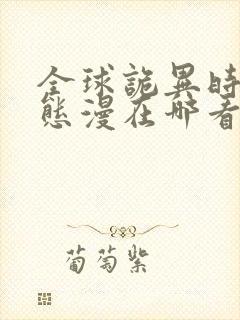 全球詭異時
態漫在哪看
葡萄紫